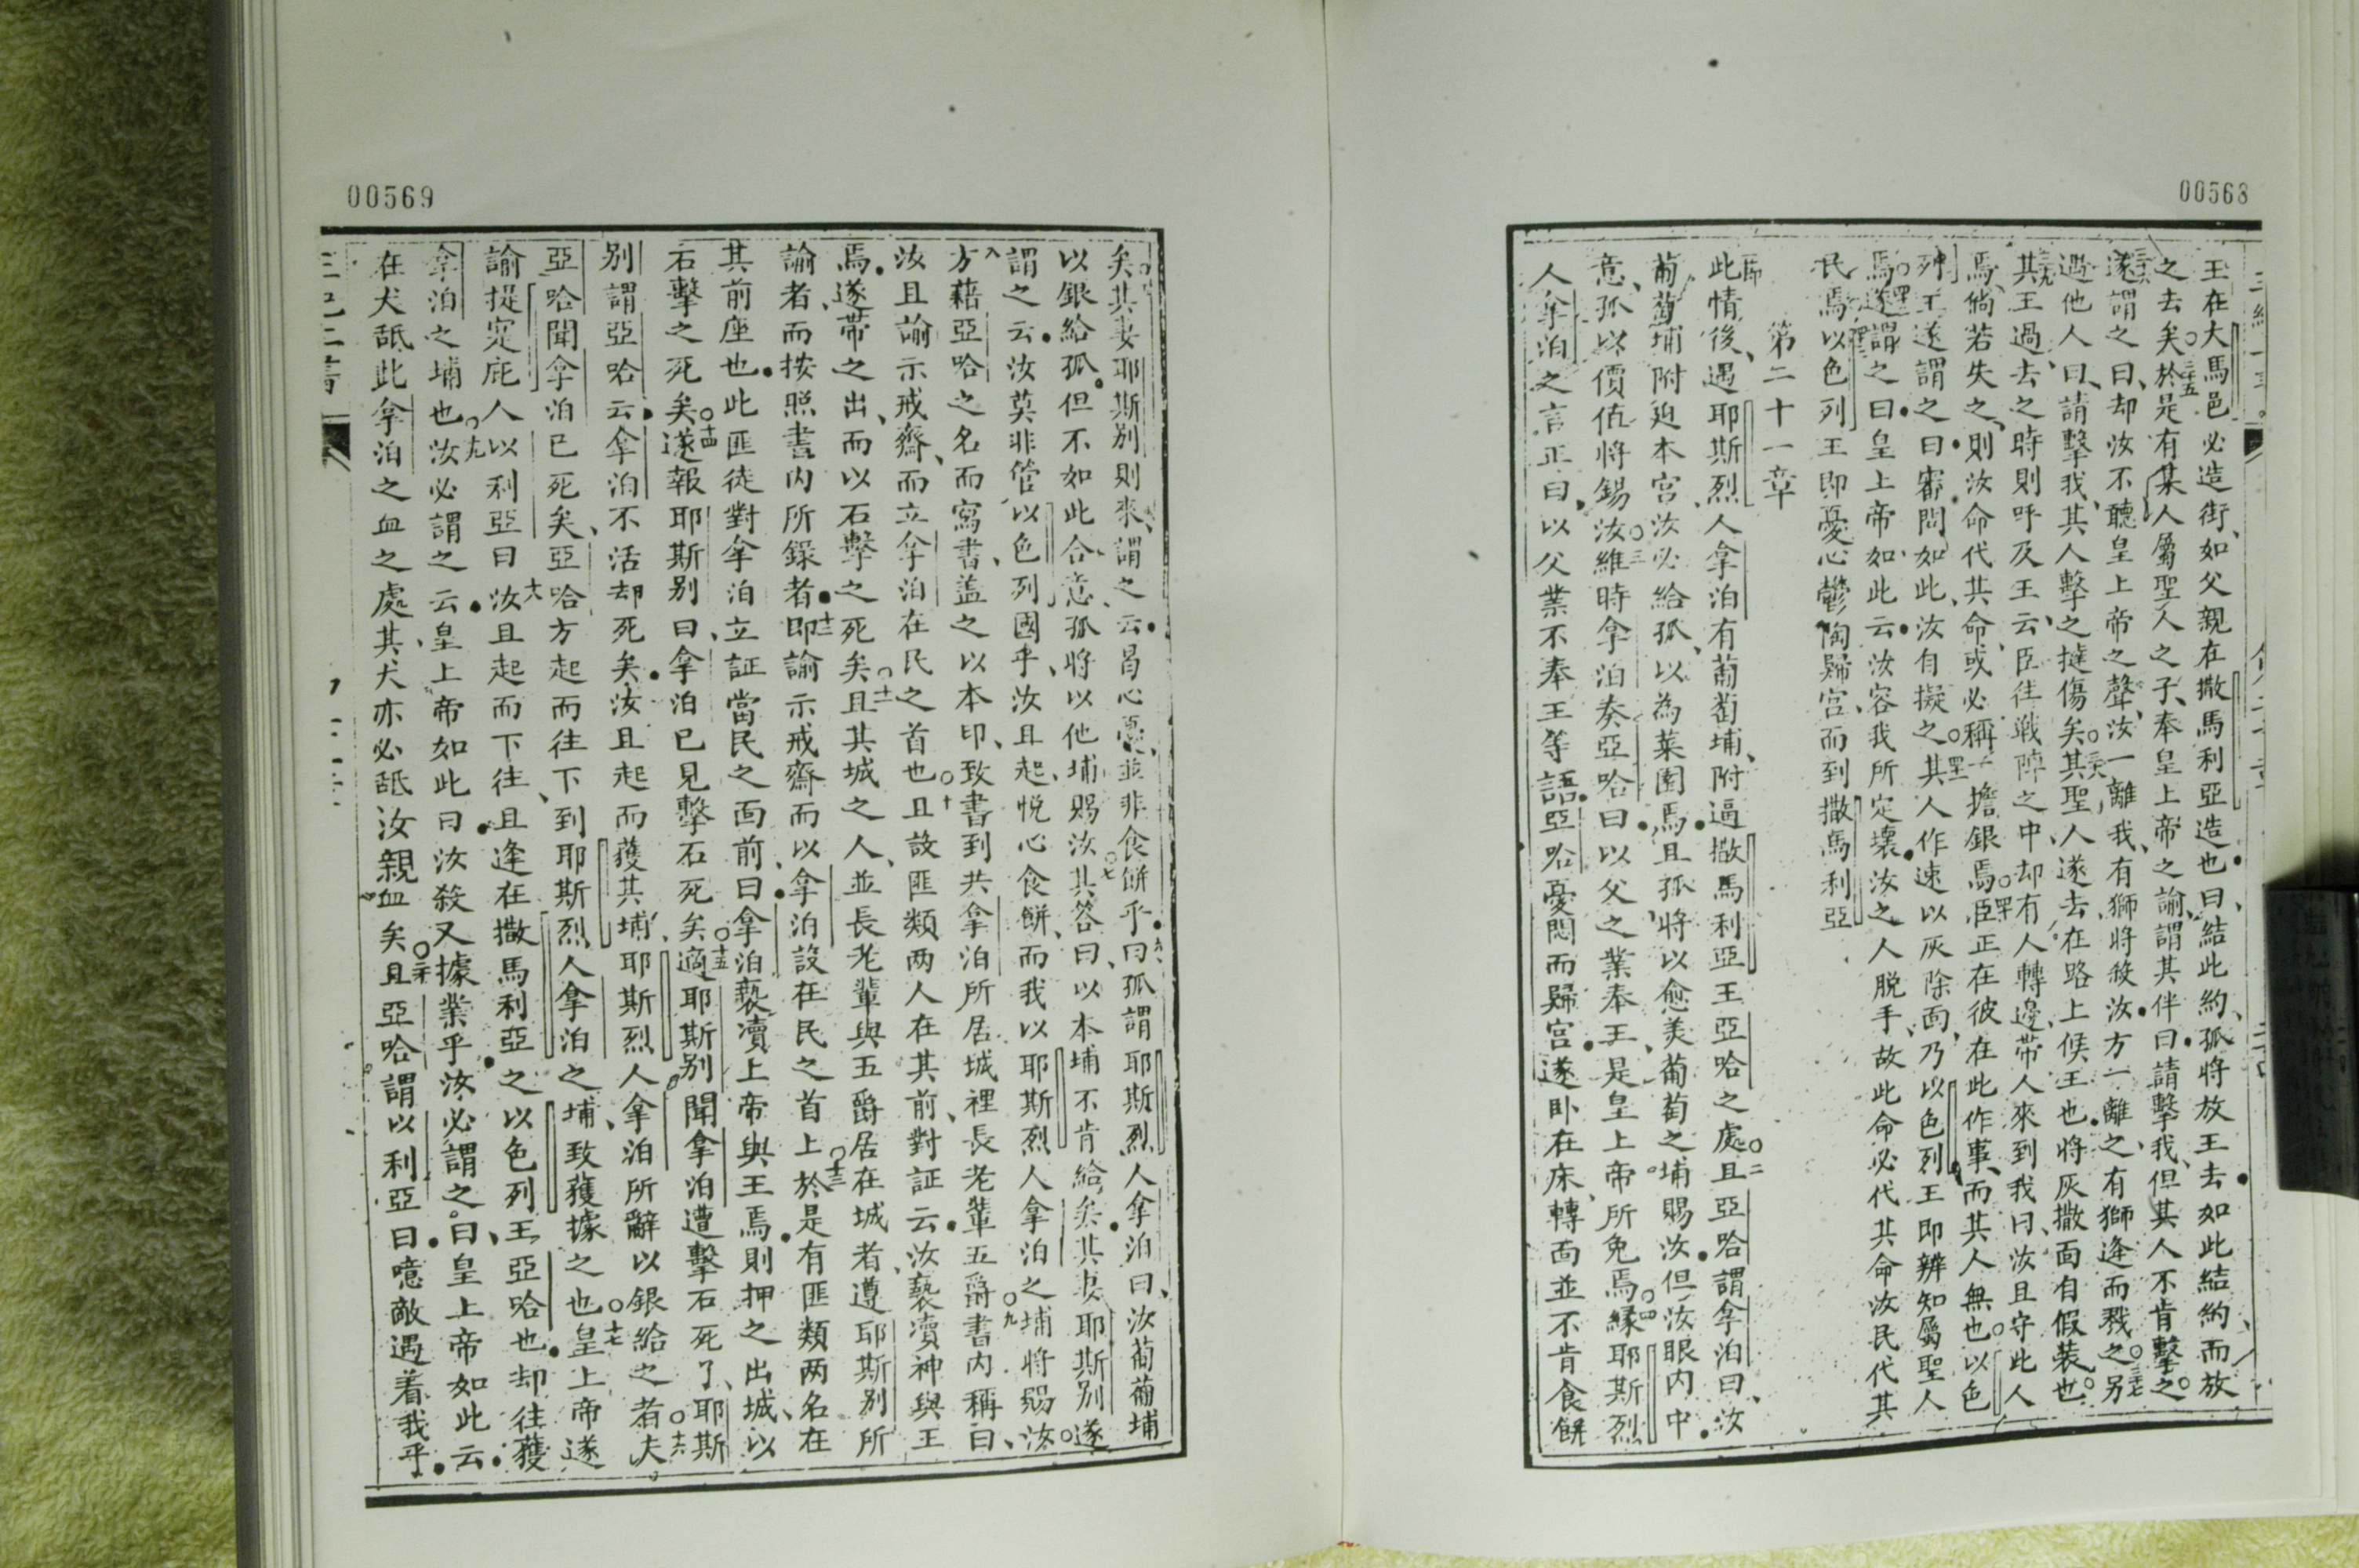 00568
王在大馬邑必造街、如父親在撒馬利亞造也曰結此約、孤將放王去如此結約而放
之去矣○三五於是有某人屬聖人之子、奉皇上帝之諭、謂其伴曰請擊我、但其人不肯擊之○
三六遂謂之曰、却汝不聽皇上帝之聲、汝一離我、有獅將殺汝方一離之、有獅逢而戮之○三七另
遇他人曰、請擊我、其人擊之撻傷矣○三八其聖人、遂去在路上候王也將灰撒面自假裝也○
三九其王過去之時則呼及王云、臣往戰陣之中却有人轉邊帶人來到我曰、汝且守此人
焉、倘若失之、則汝命代其命、或必稱一擔銀焉○四十臣正在彼在此作事、而其人無也○以色
列王遂謂之曰審問如此、汝自擬之○四一其人作速以灰除面、乃以色列王即辨知屬聖人
焉○四二遂謂之曰皇上帝如此云汝容我所定壞汝之人脫手、故此命必代其命汝民代其
民焉○四三以色列王即憂心鬱陶歸宮、而到撒馬利亞
第二十一章
一節此情後、遇耶斯烈人拿泊有葡萄埔、附逼撒馬利亞王亞哈之處○二且亞哈謂拿泊曰、汝
葡萄埔附近本宮汝必給孤、以為菜園焉且孤將以愈美葡萄之埔賜汝但汝眼內中
意、孤以價值將錫汝○三維時拿泊奏亞哈曰以父之業奉王、是皇上帝所免焉○四緣耶斯烈
人拿泊之言正曰、以父業不奉王等語亞哈憂悶而歸宮遂臥在床、轉面並不肯食餅
00569
矣○五其妻耶斯別則來、謂之云曷心憂、並非食餅乎○六曰孤謂耶斯烈人拿泊曰、汝葡萄埔
以銀給孤但不如此合意、孤將以他埔賜汝○七其答曰、以本埔不肯給矣其妻耶斯別遂
謂之云汝莫非管以色列國乎、汝且起、悅心食餅、而我以耶斯烈人拿泊之埔將賜汝○
八方藉亞哈之名而寫書、蓋之以本印、致書到共拿泊所居城裡長老輩五爵○九書內稱曰、
汝且諭示戒齋、而立拿泊在民之首也○十且設匪類两人在其前、對証云汝褻瀆神與王
焉遂帶之出、而以石擊之死矣○十一且其城之人、並長老輩與五爵居在城者、遵耶斯別所
諭者、而按照書內所錄者○十二即諭示戒齋而以拿泊設在民之首上○十三於是有匪類两名在
其前座也此匪徒對拿泊立証當民之面前曰拿泊褻瀆上帝與王焉則押之出城、以
石擊之死矣○十四遂報耶斯別曰、拿泊已見擊石死矣○十五適耶斯別聞拿泊遭擊石死了、耶斯
別謂亞哈云拿泊不活却死矣汝且起而獲其埔、耶斯烈人拿泊所辭以銀給之者夫○十六
亞哈聞拿泊已死矣、亞哈方起而往下、到耶斯烈人拿泊之埔、致獲據之也○十七皇上帝遂
諭提宪庇人以利亞曰○十八汝且起而下往、且逢在撒馬利亞之以色列王、亞哈也却往獲
拿泊之埔也○十九汝必謂之云皇上帝如此曰汝殺又據業乎汝必謂之曰皇上帝如此云
在犬舐此拿泊之血之處、其犬亦必舐汝親血矣○二十且亞哈謂以利亞曰噫敵遇着我乎